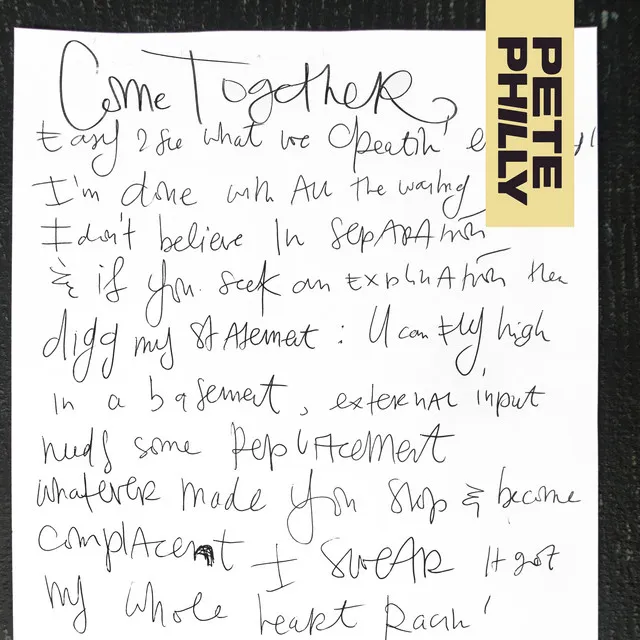 Come Together,
PETE PHILLY
Easy 2 see what we CReatin'
I'm done with All the waiting
I don't believe In SepARAtion
& if you seek an ExplinAtion then
digg my StAtement : U can Fly high
In a basement, exteRNAL input
needs some ReplAcement
WhateveR made you Stop & become
complAcent I SweAR It got
My whole heaRt Racin'